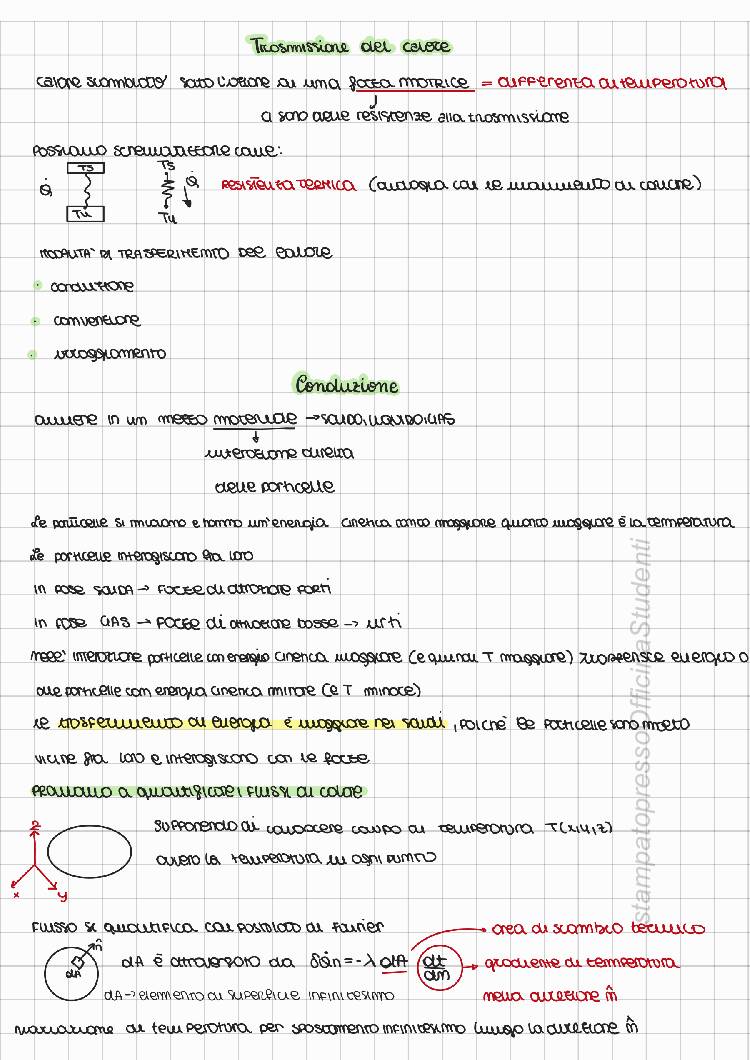 Trasmissione del calore
calore scambiato sotto l'azione di una forza MOTRICE = differenza di temperatura
ci sono delle resistenze alla trasmissione
possiamo schematizzare come:
TS
TS
Q̇
Q̇
Resistenza termica (analogia con le movimento di cariche)
Tu
Tu
MODALITA' DI TRASFERIMENTO del calore
· conduzione
· convenzione
· irraggiamento
Conduzione
avviene in un mezzo materiale → SOLIDO, LIQUIDO, GAS
interazione diretta
delle particelle
Le particelle si muovono e hanno un'energia cinetica tanto maggiore quanto maggiore è la temperatura
Le particelle interagiscono fra loro
in fase SOLIDA → FORZE di attrazione forti
in fase GAS → FORZE di attrazione basse → urti
nell' interazione particelle con energia cinetica maggiore (e quindi T maggiore) trasferisce energia a
alle particelle con energia cinetica minore (e T minore)
il trasferimento di energia è maggiore nei solidi, poichè le particelle sono molto
vicine fra loro e interagiscono con le forze
PROVIAMO a quantificare i flussi di calore
z
supponendo di conoscere campo di temperatura T(x,y,z)
ovvero la temperatura in ogni punto
x y
stampatopressoOfficinaStudenti
Flusso si quantifica col postulato di Fourier
area di scambio termico
n̂
dA
dA è attraversato da δQ̇n = -λ dA dt/dn
gradiente di temperatura
dA → elemento di superficie infinitesimo
nella direzione n̂
variazione di temperatura per spostamento infinitesimo lungo la direzione n̂